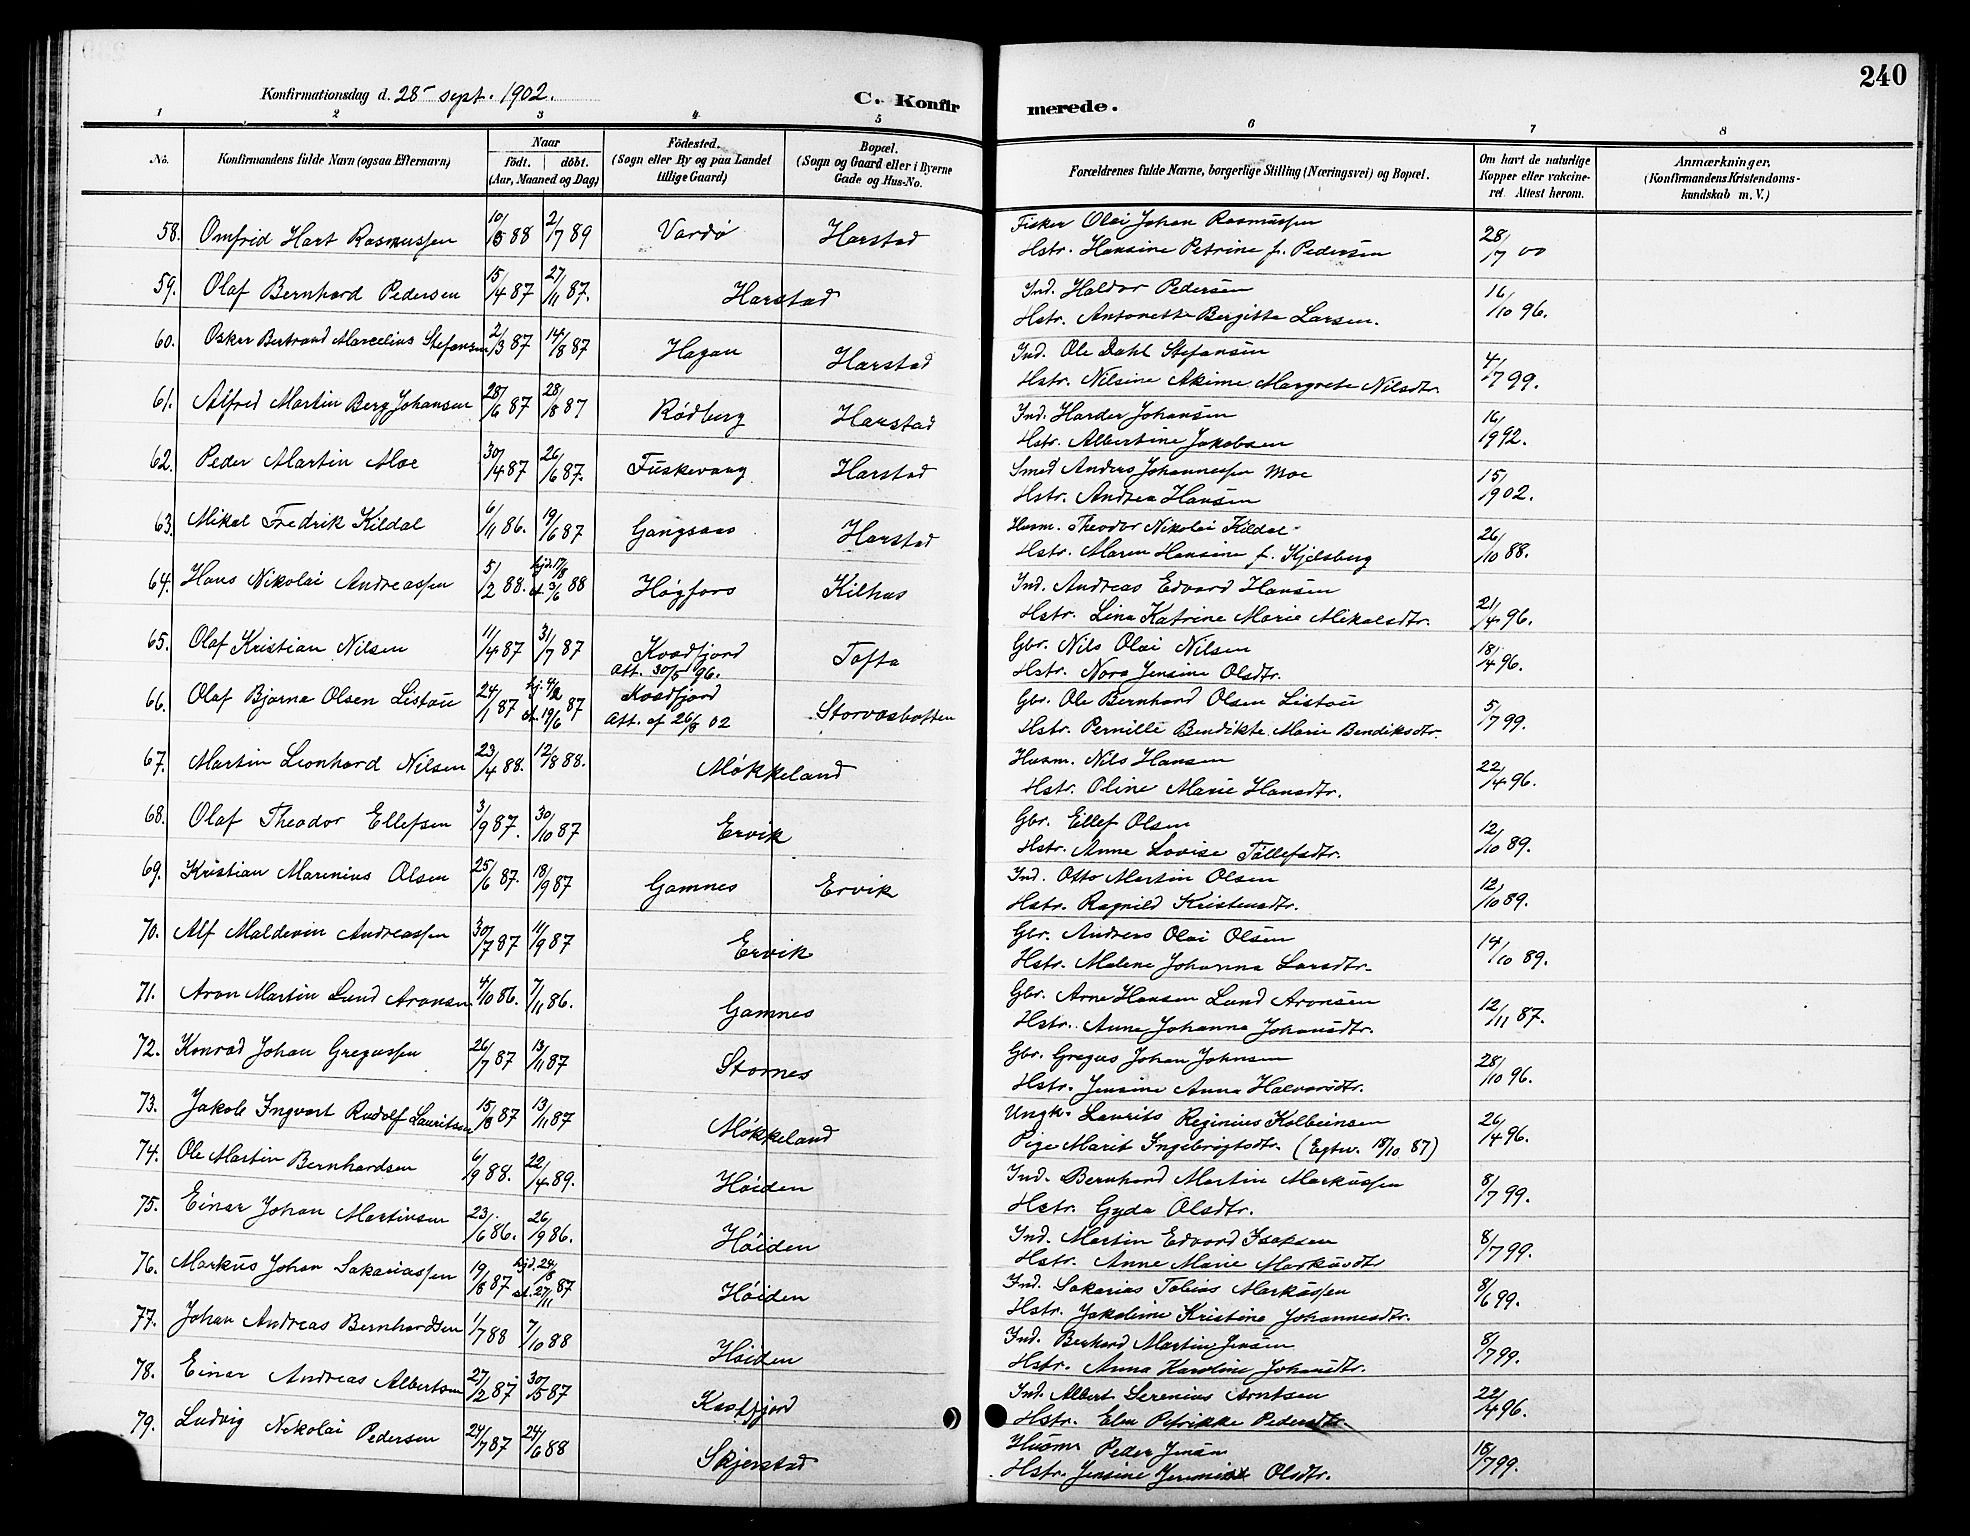 240
Konfirmationsdag d. 28 sept. 1902.
C. Konfirmerede.
1 2 3 4 5 6 7 8
No. Konfirmandens fulde Navn (ogsaa Efternavn) Naar födt. döbt. (Aar, Maaned og Dag) Födested. (Sogn eller By og paa Landet tillige Gaard) Bopæl. (Sogn og Gaard eller i Byerne Gade og Hus-No. Forældrenes fulde Navne, borgerlige Stilling (Næringsvei) og Bopæl. Om havt de naturlige Kopper eller vakcineret. Attest herom. Anmærkninger. (Konfirmandens Kristendomskundskab m. V.)
58. Omfrid Hart Rasmussen 10/5 88 2/7 89 Vardö Harstad Fisker Olai Johan Rasmussen 28/7 00
Hstr. Hansine Petrine f. Pedersen
59. Olaf Bernhard Pedersen 15/4 87 27/11 87. Harstad Ind. Haldor Pedersen 16/10 96.
Hstr. Antonette Bergitte Larsen.
60. Oskar Bertrand Marcelius Stefansen 2/3 87 14/8 87 Hagan Harstad Ind. Ole Dahl Stefansen 4/7 99.
Hstr. Nilsine Akime Margrete Nilsdtr.
61. Alfred Martin Berg Johansen 28/6 87 28/8 87 Rödberg Harstad Ind. Harder Johansen 16/9 92.
Hstr. Albertine Jakobsen
62. Peder Martin Moe 30/4 87 26/6 87. Fuskevaag Harstad Smed Anders Johannessen Moe
Hstr. Andrea Hansen
63. Mikal Fredrik Kildal 6/11 86. 19/6 87 Gangsaas Harstad Husm. Theodor Nikolai Kildal 26/10 88.
Hstr. Maren Hansine f. Kjelsberg
64. Hans Nikolai Andreassen 5/2 88. 3/6 88 Högfors Kilhus Ind. Andreas Edvard Hansen 21/4 96.
Hstr. Lina Katrine Marie Mikalsdtr.
65. Olaf Kristian Nilsen 11/4 87 31/7 87 Kvadfjord Att. 30/5 96. Tofta Gbr. Nils Olai Nilsen 18/4 96.
Hstr. Nora Jensine Olsdtr.
66. Olaf Bjarne Olsen Listau 24/1 87 st. 19/6 87 Kvadfjord Att. af 26/8 02 Storvasbotten Gbr. Ole Bernhard Olsen Listau 5/7 99.
Hstr. Pernille Bendikte Marie Bendiksdtr.
67. Martin Leonhard Nilsen 23/4 88. 12/8 88. Mökkeland Husm. Nils Hansen 22/4 96.
Hstr. Oline Marie Hansdtr.
68. Olaf Theodor Ellefsen 3/9 87. 30/10 87 Ervik Gbr. Ellef Olsen 12/10 89.
Hstr. Anne Lovise Tollefsdtr.
69. Kristian Marenius Olsen 25/6 87. 18/9 87 Gamnes Ervik Ind. Otto Martin Olsen 12/10 89.
Hstr. Ragnild Kristensdtr.
70. Alf Maldevin Andreassen 30/7 87 11/9 87 Ervik Gbr. Andreas Olai Olsen 14/10 89.
Hstr. Malene Johanna Larsdtr.
71. Aron Martin Lund Aronsen 4/10 86. 7/11 86. Gamnes Gbr. Arne Hansen Lund Aronsen 12/11 87.
Hstr. Anne Johanna Johansdtr.
72. Konrad Johan Gregussen 26/7 87 13/11 87 Stornes Gbr. Gregus Johan Johnsen 28/10 96.
Hstr. Jensine Anna Halvorsdtr.
73. Jakob Ingvart Rudolf Lauritsen 15/8 87 13/11 87 Mökkeland Ungk. Laurits Reginius Kolbeinsen 26/4 96.
Pige Marit Ingebrigtsdtr. (Egtev. 18/10 87)
74. Ole Martin Bernhardsen 6/9 88. 22/4 89. Höiden Ind. Bernhard Martin Markussen 8/7 99.
Hstr. Gyda Olsdtr.
75. Einar Johan Martinsen 23/6 86. 26/9 86. Höiden Ind. Martin Edvard Isaksen 8/7 99.
Hstr. Anne Marie Markusdtr
76. Markus Johan Sakariassen 19/8 87 hjd. 24/8 st. 27/11 87 Höiden Ind. Sakarias Tobias Markussen 8/6 99.
Hstr. Jakobine Kristine Johannesdtr.
77. Johan Andreas Bernhardsen 1/7 88 7/10 88 Höiden Ind. Berhard Martin Jensen 8/7 99.
Hstr. Anna Karoline Johansdtr.
78. Einar Andreas Albertsen 27/2 87 30/5 87 Kastfjord Ind. Albert Serenius Arntsen 22/4 96.
Hstr. Elen Petrikke Pedersdtr.
79. Ludvig Nikolai Pedersen 24/7 87 24/6 88 Skjerstad Husm Peder Jensen 18/7 99.
Hstr. Jensine Olsdtr.